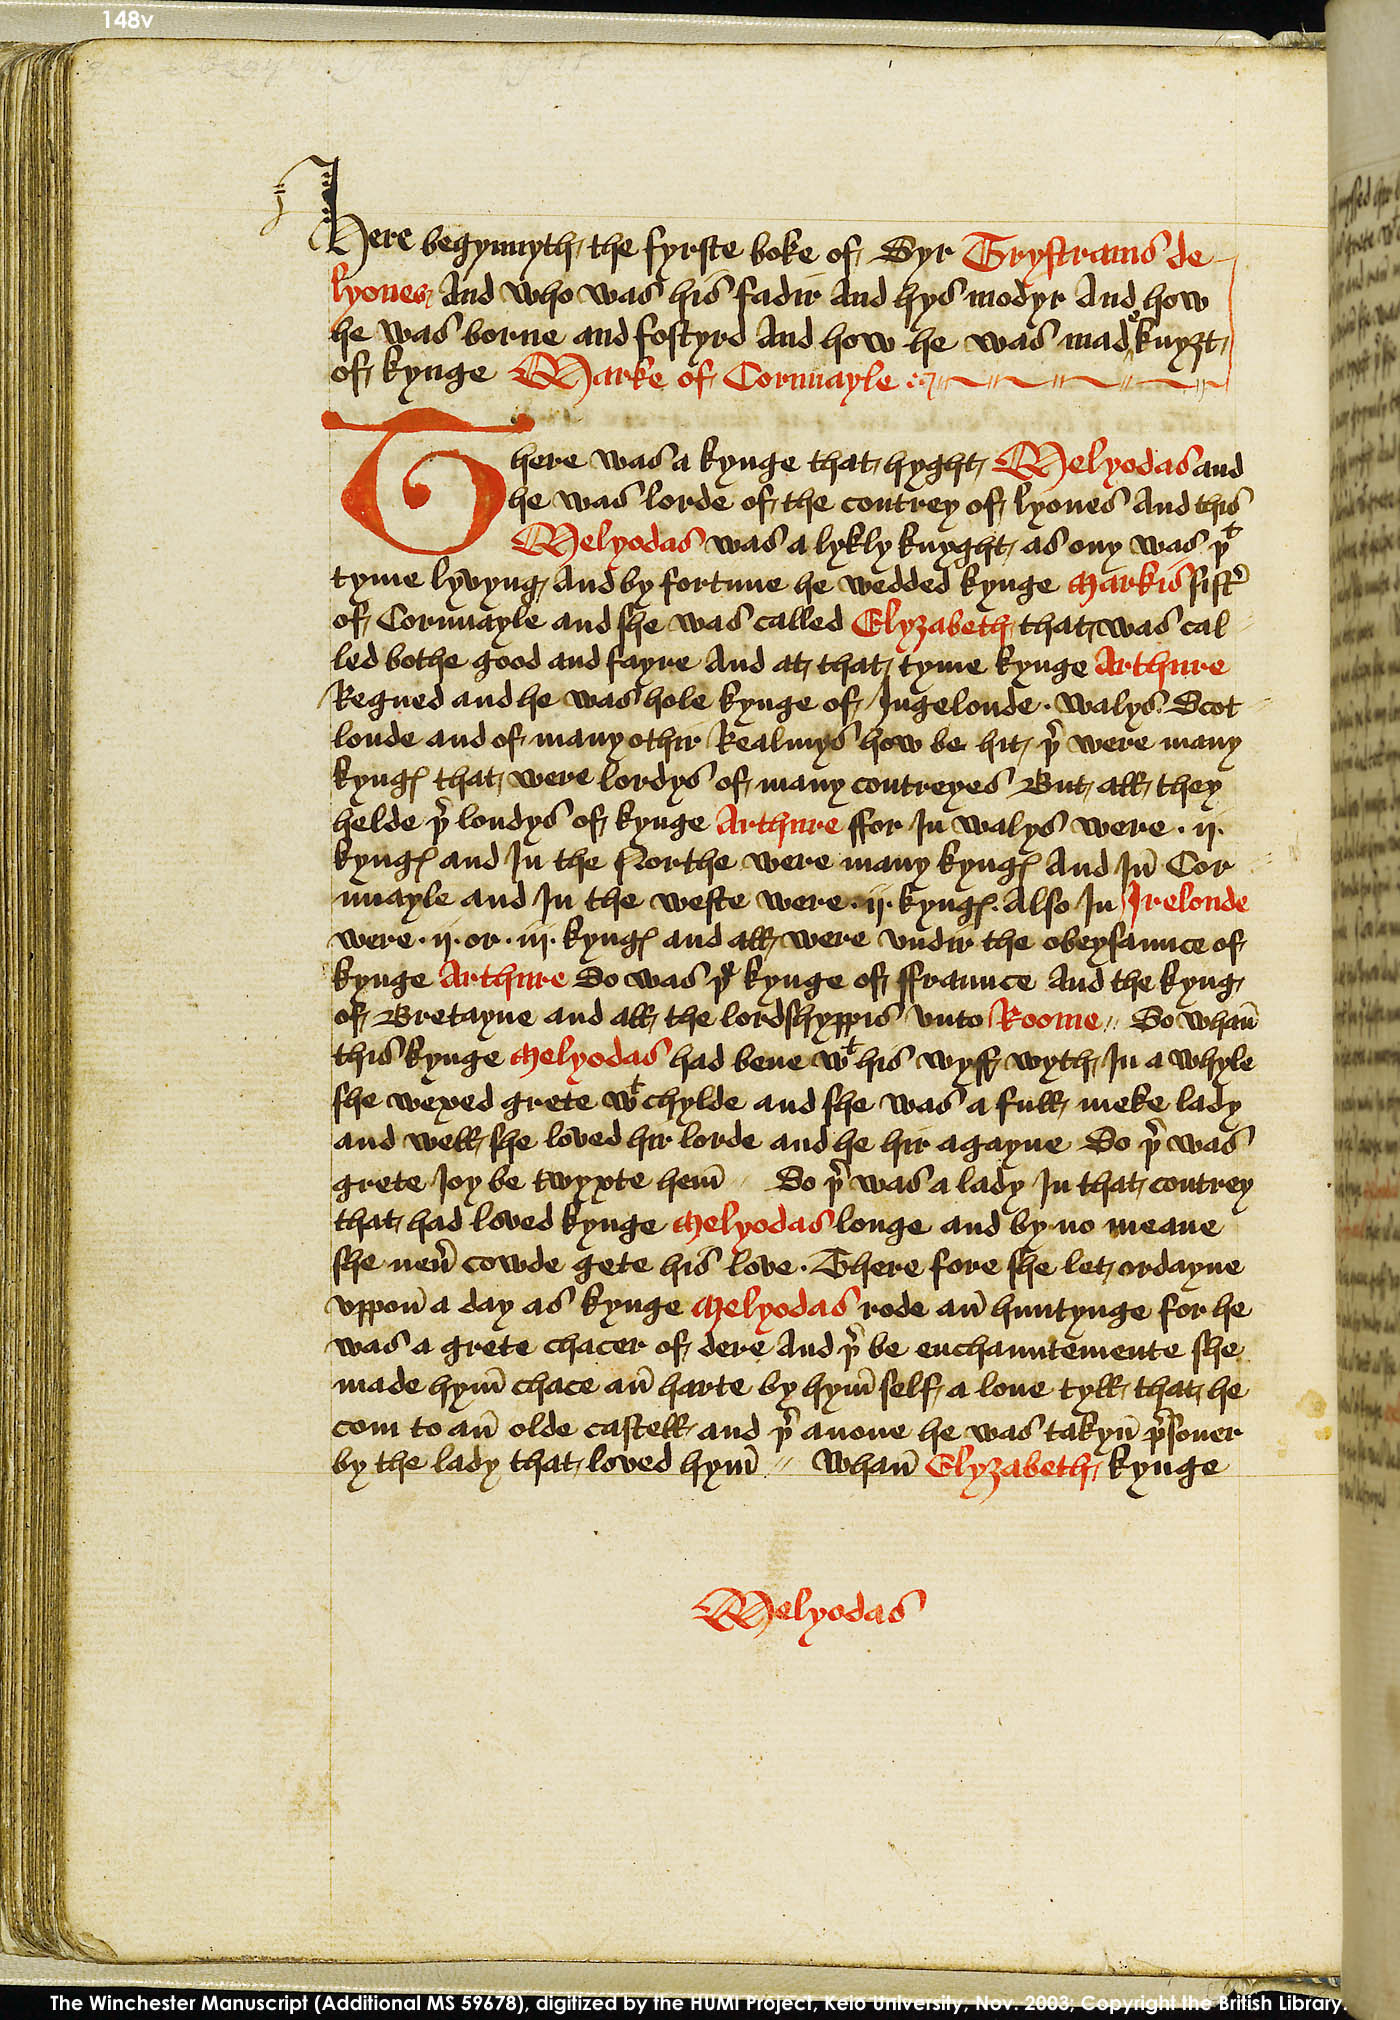 148v
Here begynnyth the fyrste boke of Syr Trystrams de
lyones And who was his fadir And hys modyr And how
he was borne and fostyrd And how he was made knyȝt
of kynge Marke of Cornuayle
There was a kynge that hyght Melyodas and
he was lorde of the contrey of lyones And this
Melyodas was a lykly knyght as ony was þᵗ
tyme lyvyng And by fortune he wedded kynge Markis sist͛
of Cornuayle and she was called Elyzabeth that was cal
led bothe good and fayre And at that tyme kynge Arthure
Regned and he was hole kynge of Ingelonde · Walys Scot
londe and of many othir Realmys how be hit þ͛ were many
kyngꝭ that were lordys of many contreyes But all they
helde þ͛ londys of kynge Arthure ffor In walys were · ij ·
kyngꝭ and In the Northe were many kyngꝭ And In̄ Cor
nuayle and In the weste were · ij · kyngꝭ. Also In Irelonde
were · ij · or · iij · kyngꝭ and all were vndir the obeysaunce of
kynge Arthure So was þᵉ kynge of ffraunce And the kyng
of Bretayne and all the lordshyppis vnto Roome // So whan̄
this kynge Melyodas had bene wᵗ his wyff wyth In a whyle
she wexed grete wᵗ chylde and she was a full meke lady
and well she loved hir lorde and he hir agayne So þ͛ was
grete Ioy be twyxte hem̄ // So þ͛ was a lady In that contrey
that had loved kynge Melyodas longe and by no meane
she neu͛ cowde gete his love · There fore she let ordayne
vppon̄ a day as kynge Melyodas rode an̄ huntynge for he
was a grete chacer of dere And þ͛ be enchauntemente she
made hym̄ chace an̄ harte by hym̄ self a lone tyll that he
com to an̄ olde castell and þ͛ anone he was takyn̄ p͛soner
by the lady that loved hym̄ // Whan̄ Elyzabeth kynge
Melyodas
The Winchester Manuscript (Additional MS 59678), digitized by the HUMI Project, Keio University, Nov. 2003; Copyright the British Library.